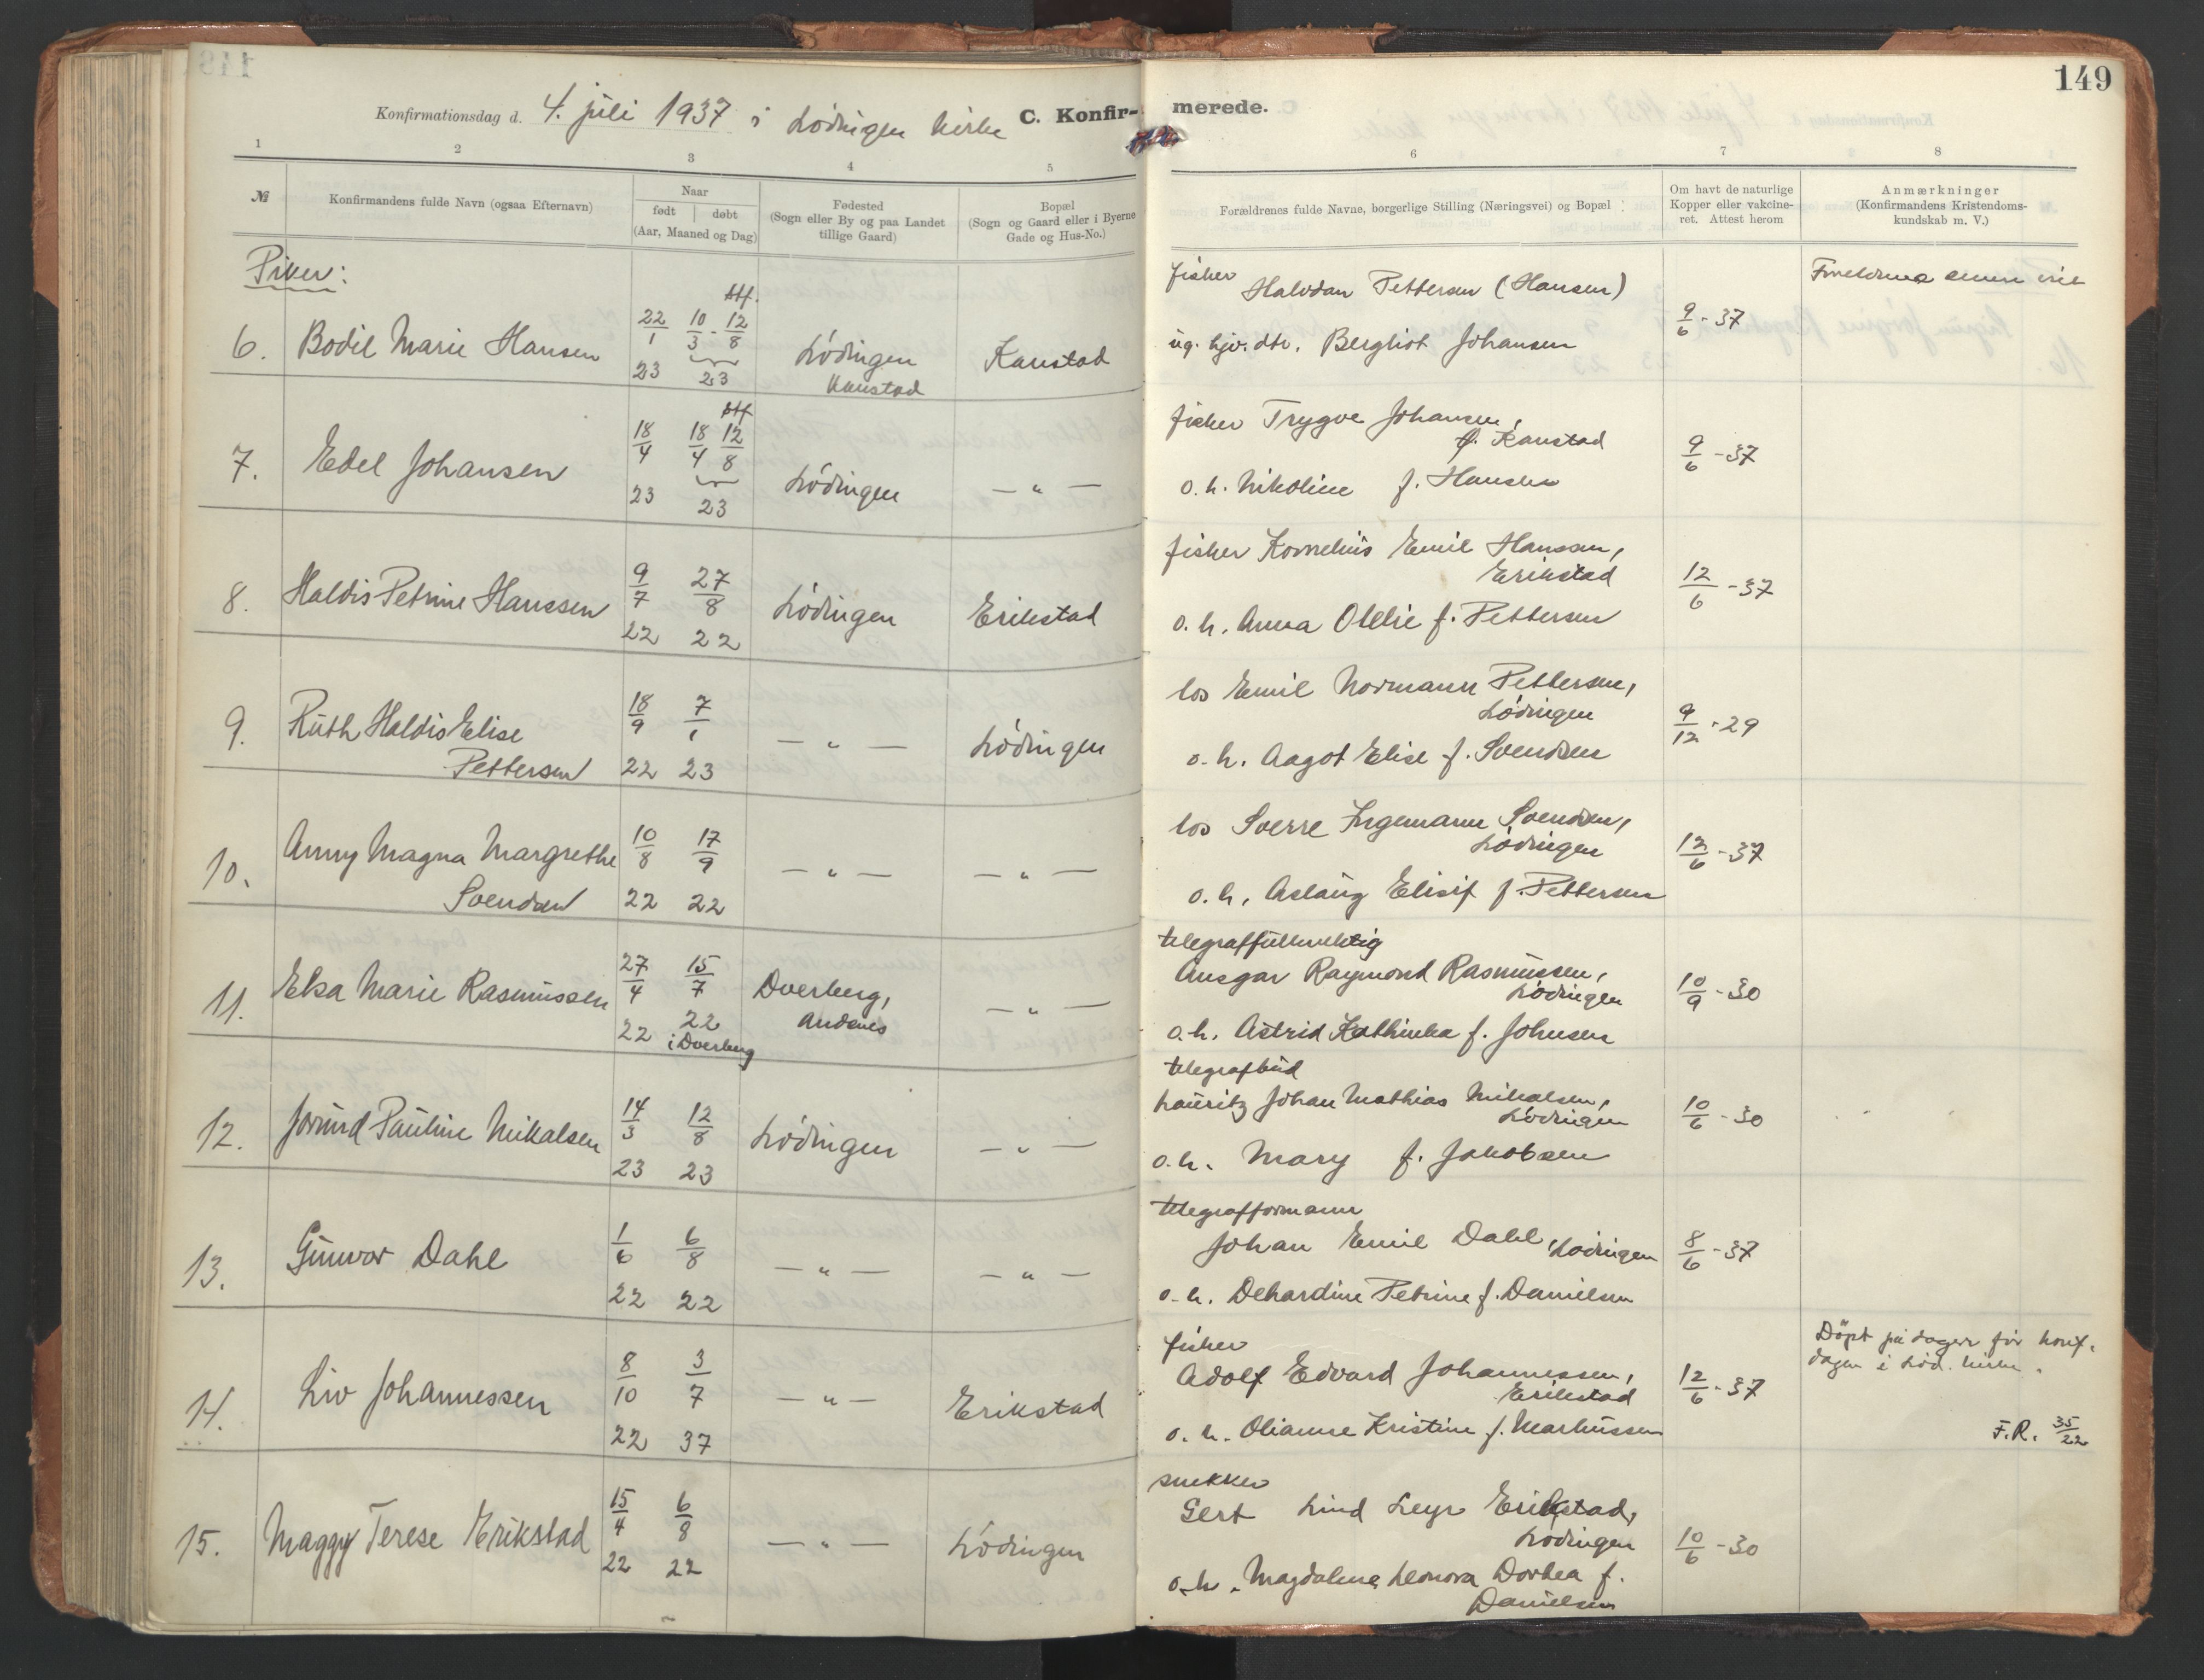 149
Konfirmationsdag d. 4. juli 1937 i Lödingen kirke C. Konfir- merede.
1 2 3 4 5 6 7 8
№
Konfirmandens fulde Navn (ogsaa Efternavn)
Naar
født | døbt
(Aar, Maaned og Dag)
Fødested
(Sogn eller By og paa Landet
tillige Gaard)
Bopæl
(Sogn og Gaard eller i Byerne
Gade og Hus-No.)
Forældrenes fulde Navne, borgerlige Stilling (Næringsvei) og Bopæl
Om havt de naturlige
Kopper eller vakcine-
ret. Attest herom
Anmærkninger
(Konfirmandens Kristendoms-
kundskab m. V.)
Piker:
6. Bodil Marie Hansen
22/1 23
10/3 - stf. 12/8 23
Lödingen
Kanstad
Kanstad
fisker
Halvdan Pettersen (Hansen)
ug. hjv. dtr. Bergliot Johansen
9/6 - 37
7. Edel Johansen
18/4 23
18/4 stf 12/8 23
Lödingen
— " —
fisker Trygve Johansen,
Kanstad
o. h. Nikoline f. Hansen
9/6 - 37
8. Haldis Petrine Hanssen
9/7 22
27/8 22
Lödingen
Erikstad
fisker Kornelius Emil Hanssen,
Erikstad
o. h. Anna Otelie f. Pettersen
12/6 - 37
9. Ruth Haldis Elise
Pettersen
18/9 22
7/1 23
— " —
Lödingen
los Emil Normann Pettersen,
Lödingen
o. h. Aagot Elise f. Svendsen
9/12 - 29
10. Anny Magna Margrethe
Svendsen
10/8 22
17/9 22
— " —
— " —
los Sverre Ingemann Svendsen,
Lödingen
o. h. Aslaug Elisif f. Pettersen
12/6 - 37
11. Elsa Marie Rasmussen
27/4 22
15/7 22
i Dverberg
Dverberg,
Andenes
— " —
telegraffullmektig
Ansgar Raymond Rasmussen,
Lödingen
o. h. Astrid Kathinka f. Johnsen
10/9 - 30
12. Jorund Pauline Mikalsen
14/3 23
12/8 23
Lödingen
— " —
telegrafbud
Lauritz Johan Mathias Mikalsen,
Lödingen
o. h. Mary f. Jakobsen
10/6 - 30
13. Gunvor Dahl
1/6 22
6/8 22
— " —
— " —
telegrafformann
Johan Emil Dahl, Lödingen
o. h. Dehardine Petrine f. Danielsen
8/6 - 37
14. Liv Johannessen
8/10 22
3/7 37
— " —
Erikstad
fisker
Adolf Edvard Johannessen,
Erikstad
o. h. Olianne Kristine f. Markussen
12/6 - 37
Döpt på dagen för konf.
dagen i Löd. kirke.
F.R. 35/22
15. Maggy Terese Erikstad
15/4 22
6/8 22
— " —
Lödingen
snekker
Gert Lind Leyr Erikstad,
Lödingen
o. h. Magdalena Leonora Dorthea f.
Danielsen
10/6 - 30